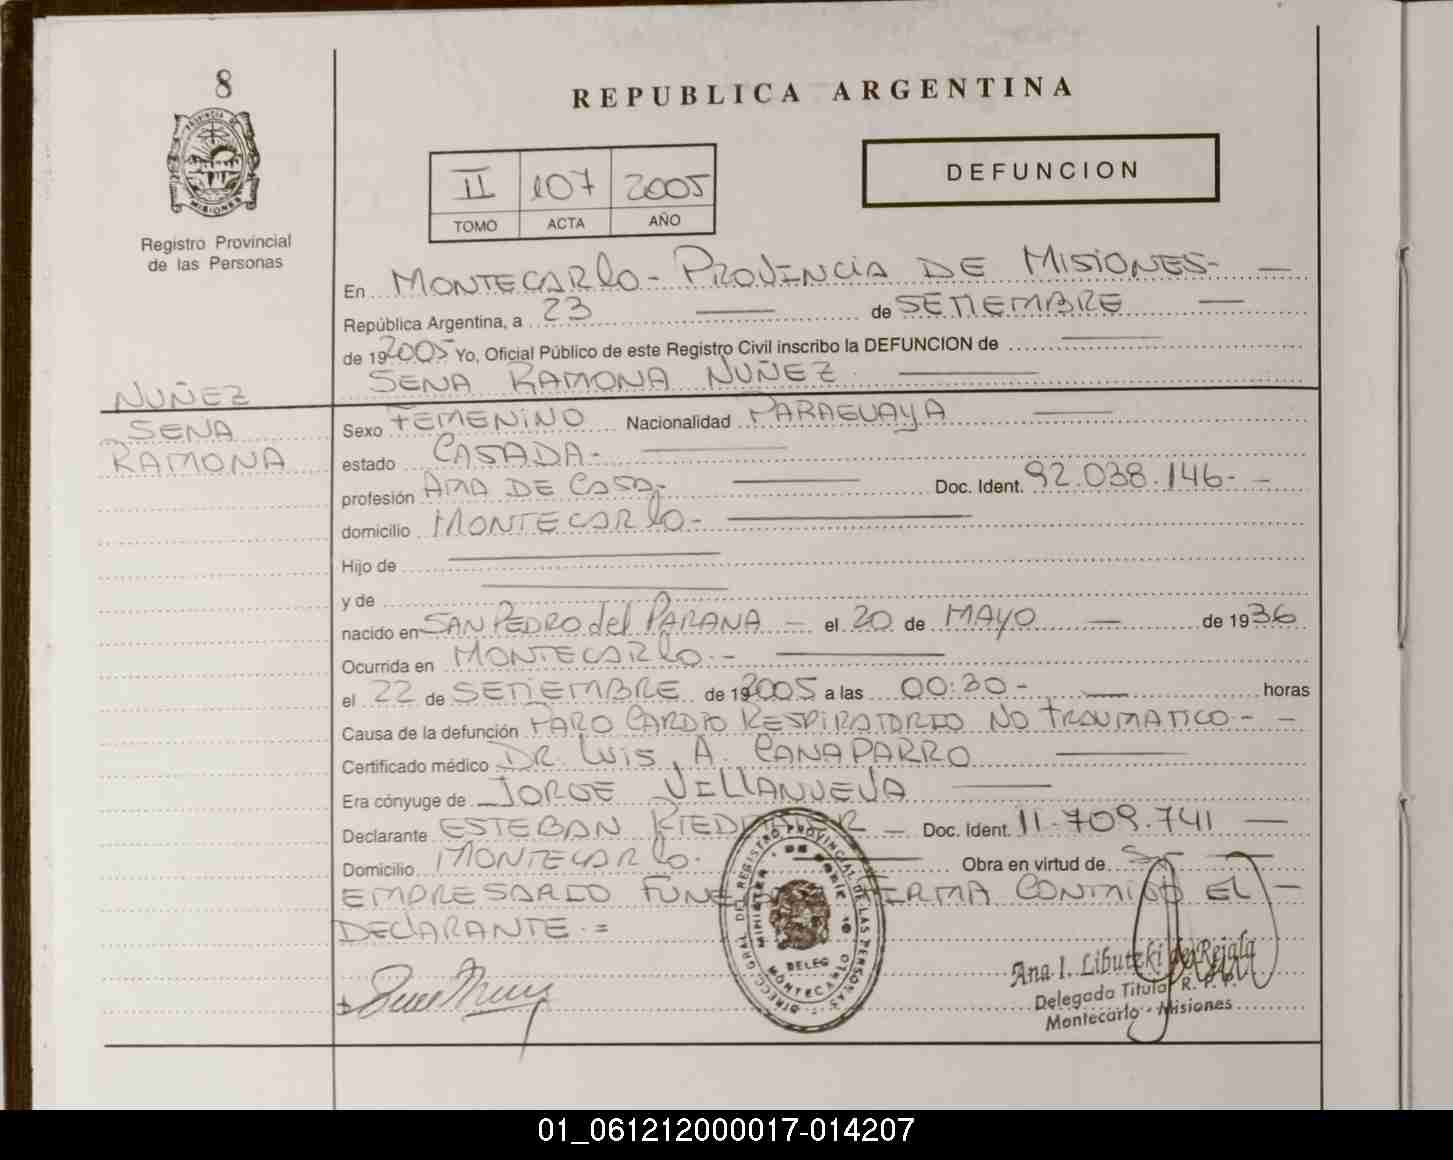 8
REPUBLICA ARGENTINA
PROVINCIA DE
MISIONES
Registro Provincial
de las Personas
II 107 2005
TOMO ACTA AÑO
DEFUNCION
En MONTECARLO - PROVINCIA DE MISIONES- —
República Argentina, a 23 — de SETIEMBRE —
de 192005 Yo, Oficial Público de este Registro Civil inscribo la DEFUNCION de —
SENA RAMONA NUÑEZ —
NUÑEZ
SENA
RAMONA
Sexo FEMENINO Nacionalidad PARAGUAYA —
estado CASADA- —
profesión AMA DE CASA- — Doc. Ident. 92.038.146- -
domicilio MONTECARLO- —
Hijo de —
y de —
nacido en SAN PEDRO del PARANA — el 20 de MAYO — de 1936
Ocurrida en MONTECARLO - —
el 22 de SETIEMBRE de 192005 a las 00:30 - — horas
Causa de la defunción PARO CARDIO RESPIRATORIO NO TRAUMATICO - -
Certificado médico DR. LUIS A. CANAPARRO —
Era cónyuge de JORGE VILLANUEVA —
Declarante ESTEBAN — Doc. Ident. 11.709.741 —
Domicilio MONTECARLO. — Obra en virtud de
EMPRESARIO FIRMA CONMIGO EL —
DECLARANTE =
DIRECC. GRAL DEL REGISTRO PROVINCIAL DE LAS PERSONAS
DELEG
MONTECARLO
Ana I. Libutzki de Rejala
Delegada Titular R. P. P.
Montecarlo - Misiones
01_061212000017-014207